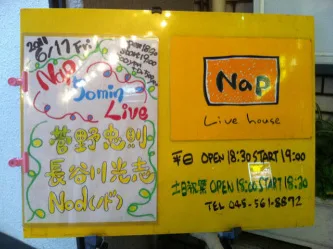 2011
6/17 Fri
open 18:30
start 19:00
Nap
50min
Live
菅野忠則
長谷川光志
Nap
Live house
平日 OPEN 18:30 START 19:00
土日祝祭 OPEN 18:00 START 18:30
TEL 045-561-8872